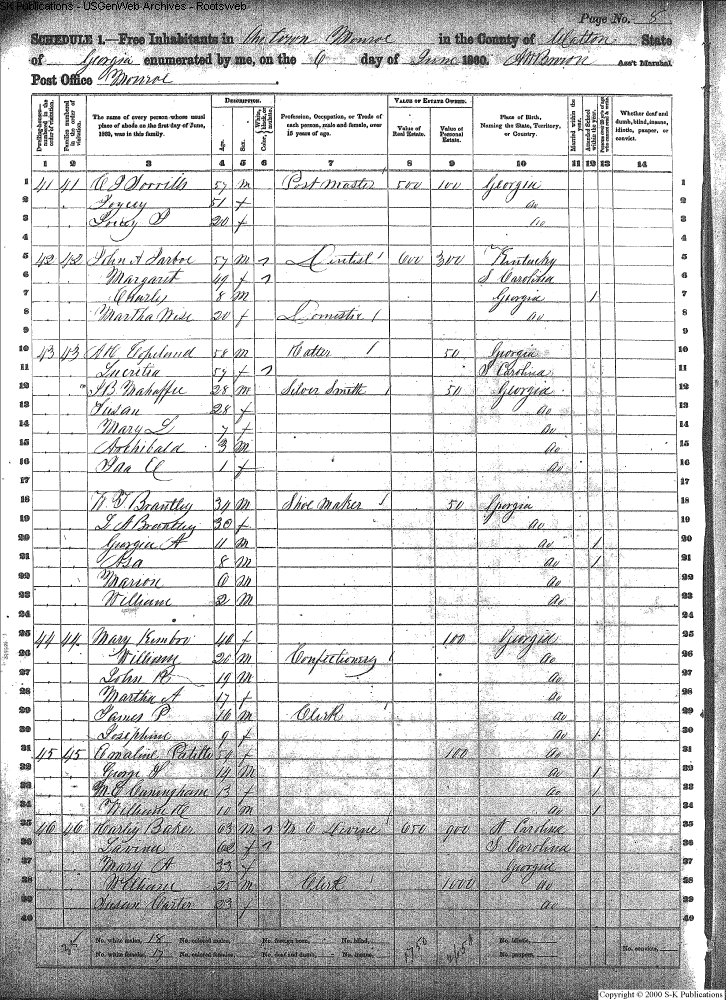 S-K Publications - USGenWeb Archives - Rootsweb
Page No. 8
SCHEDULE 1.—Free Inhabitants in the town Monroe in the County of Walton State
of Georgia enumerated by me, on the 6 day of June 1860. Ass't Marshal
Post Office Monroe
Dwelling-houses—numbered in the order of visitation.
Families numbered in the order of visitation.
The name of every person whose usual place of abode on the first day of June, 1860, was in this family.
Description.
Age.
Sex.
Color, White, black, or mulatto.
Profession, Occupation, or Trade of each person, male and female, over 15 years of age.
Value of Estate Owned.
Value of Real Estate.
Value of Personal Estate.
Place of Birth, Naming the State, Territory, or Country.
Married within the year.
Attended School within the year.
Whether deaf and dumb, blind, insane, idiotic, pauper, or convict.
1 2 3 4 5 6 7 8 9 10 11 12 13 14
1 41 41 57 m Post Master 500 100 Georgia 1
2 51 f do 2
3 20 f do 3
4 4
5 42 42 John A 57 m Dentist 600 300 Kentucky 5
6 Margaret 49 f S Carolina 6
7 Charly 8 m Georgia 1 7
8 Martha Wise 20 f Domestic do 8
9 9
10 43 43 Copeland 58 m Hatter 50 Georgia 10
11 Lucritia 57 f S Carolina 11
12 J B Mahaffee 28 m Silver Smith 50 Georgia 12
13 Susan 28 f do 13
14 Mary L 7 f do 14
15 Archibald 3 m do 15
16 Ida E 1 f do 16
17 17
18 Brantley 34 m Shoe Maker 50 Georgia 18
19 Brantley 30 f do 19
20 Georgia A 11 m do 1 20
21 Asa 8 m do 1 21
22 Marion 6 m do 22
23 William 2 m do 23
24 24
25 44 44 Mary Kimbro 40 f 100 Georgia 25
26 William 20 m Confectionery do 26
27 John R 19 m do 27
28 Martha A 17 f do 28
29 James P 16 m Clerk do 29
30 Josephine 9 f do 1 30
31 45 45 f 100 do 31
32 George 14 m do 1 32
33 M E Cuningham 13 f do 1 33
34 William H 10 m do 1 34
35 46 46 Baker 63 m M E Divine 650 900 N Carolina 35
36 Lavina 62 f S Carolina 36
37 Mary A 33 f Georgia 37
38 William 25 m Clerk 1000 do 38
39 Susan Carter 23 f do 39
40 40
No. white males, 18 No. colored males, No. foreign born, No. blind, No. idiotic,
No. white females, 17 No. colored females, No. deaf and dumb, No. insane, No. paupers, No. convicts,
Copyright © 2000 S-K Publications